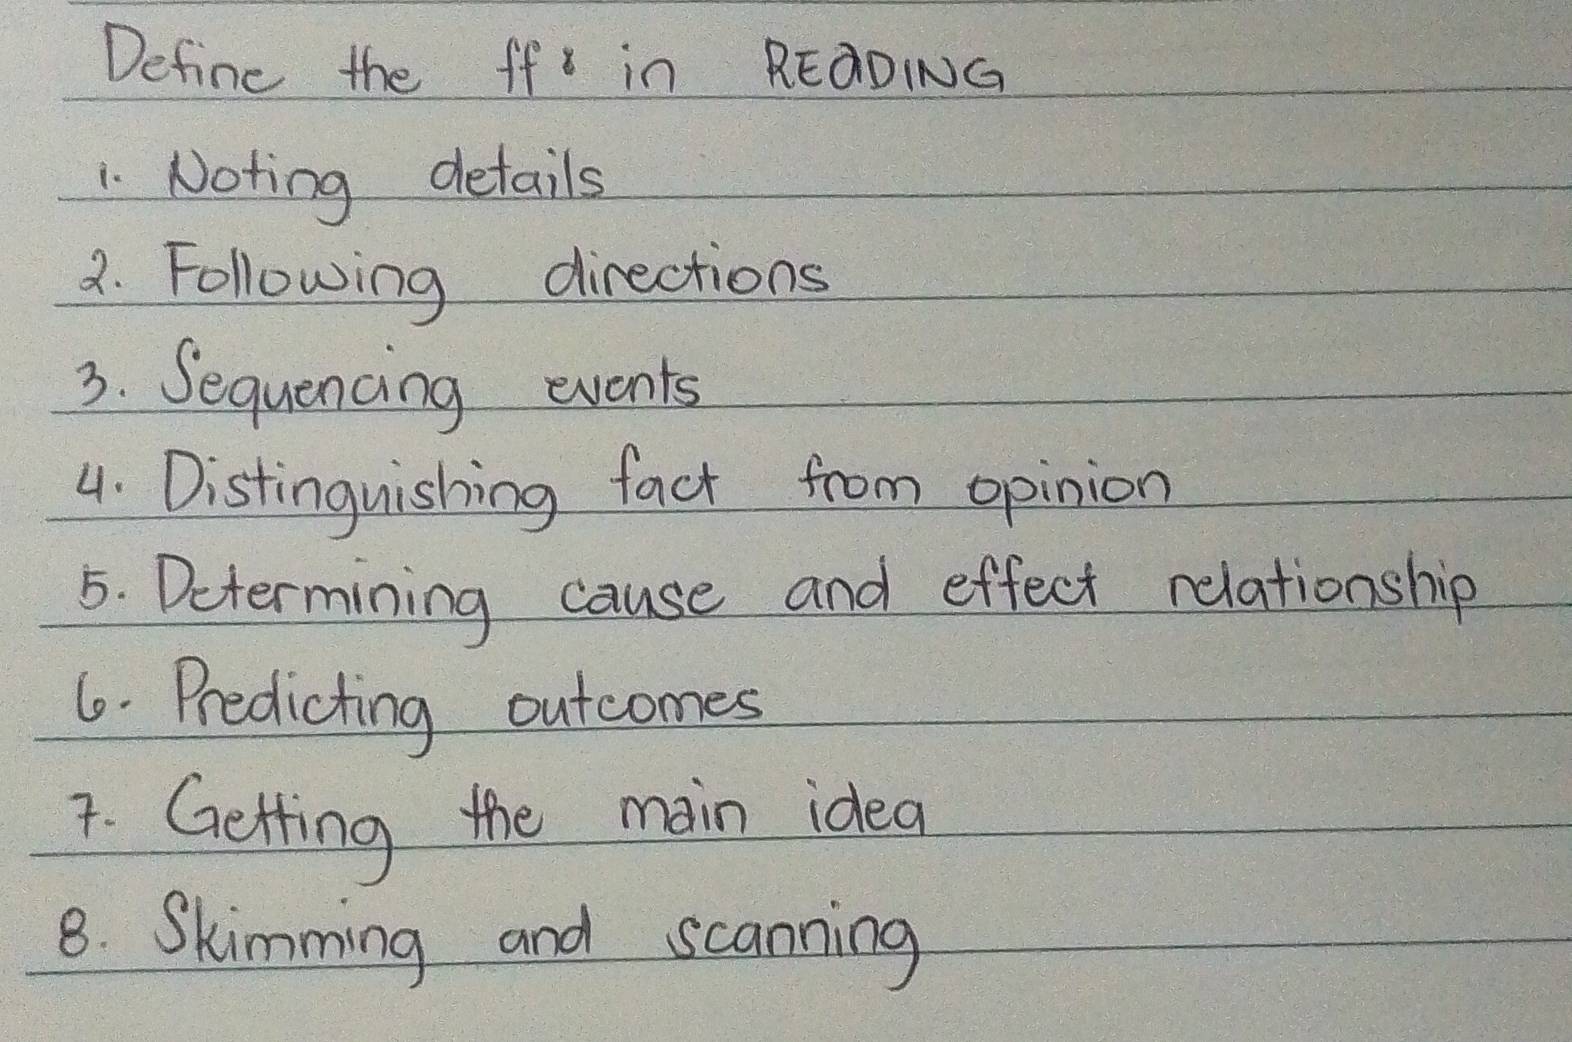 Define the ff: in READING
1. Noting details
2. Following directions
3. Sequencing events
4. Distinguishing fact from opinion
5. Determining cause and effect relationship
6. Predicting outcomes
7. Getting the main idea
8. Skimming and scanning